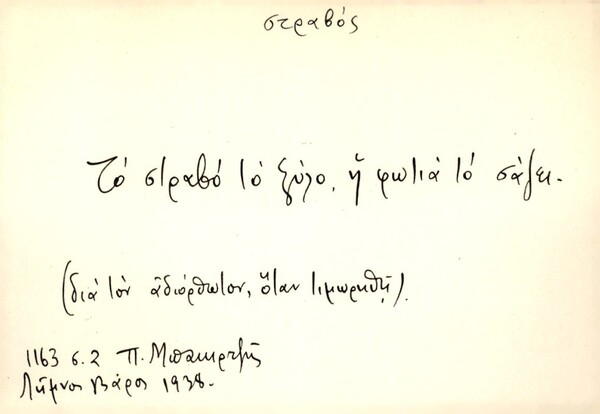 στραβός
Τό στραβό τό ξύλο, ἡ φωτιά τό σάζει.
(διά τόν ἀδιόρθωτον, ὅταν τιμωρηθῇ).
1163 σ. 2 Π. Μπακιρτζῆς
Λῆμνος Βάρος 1938.